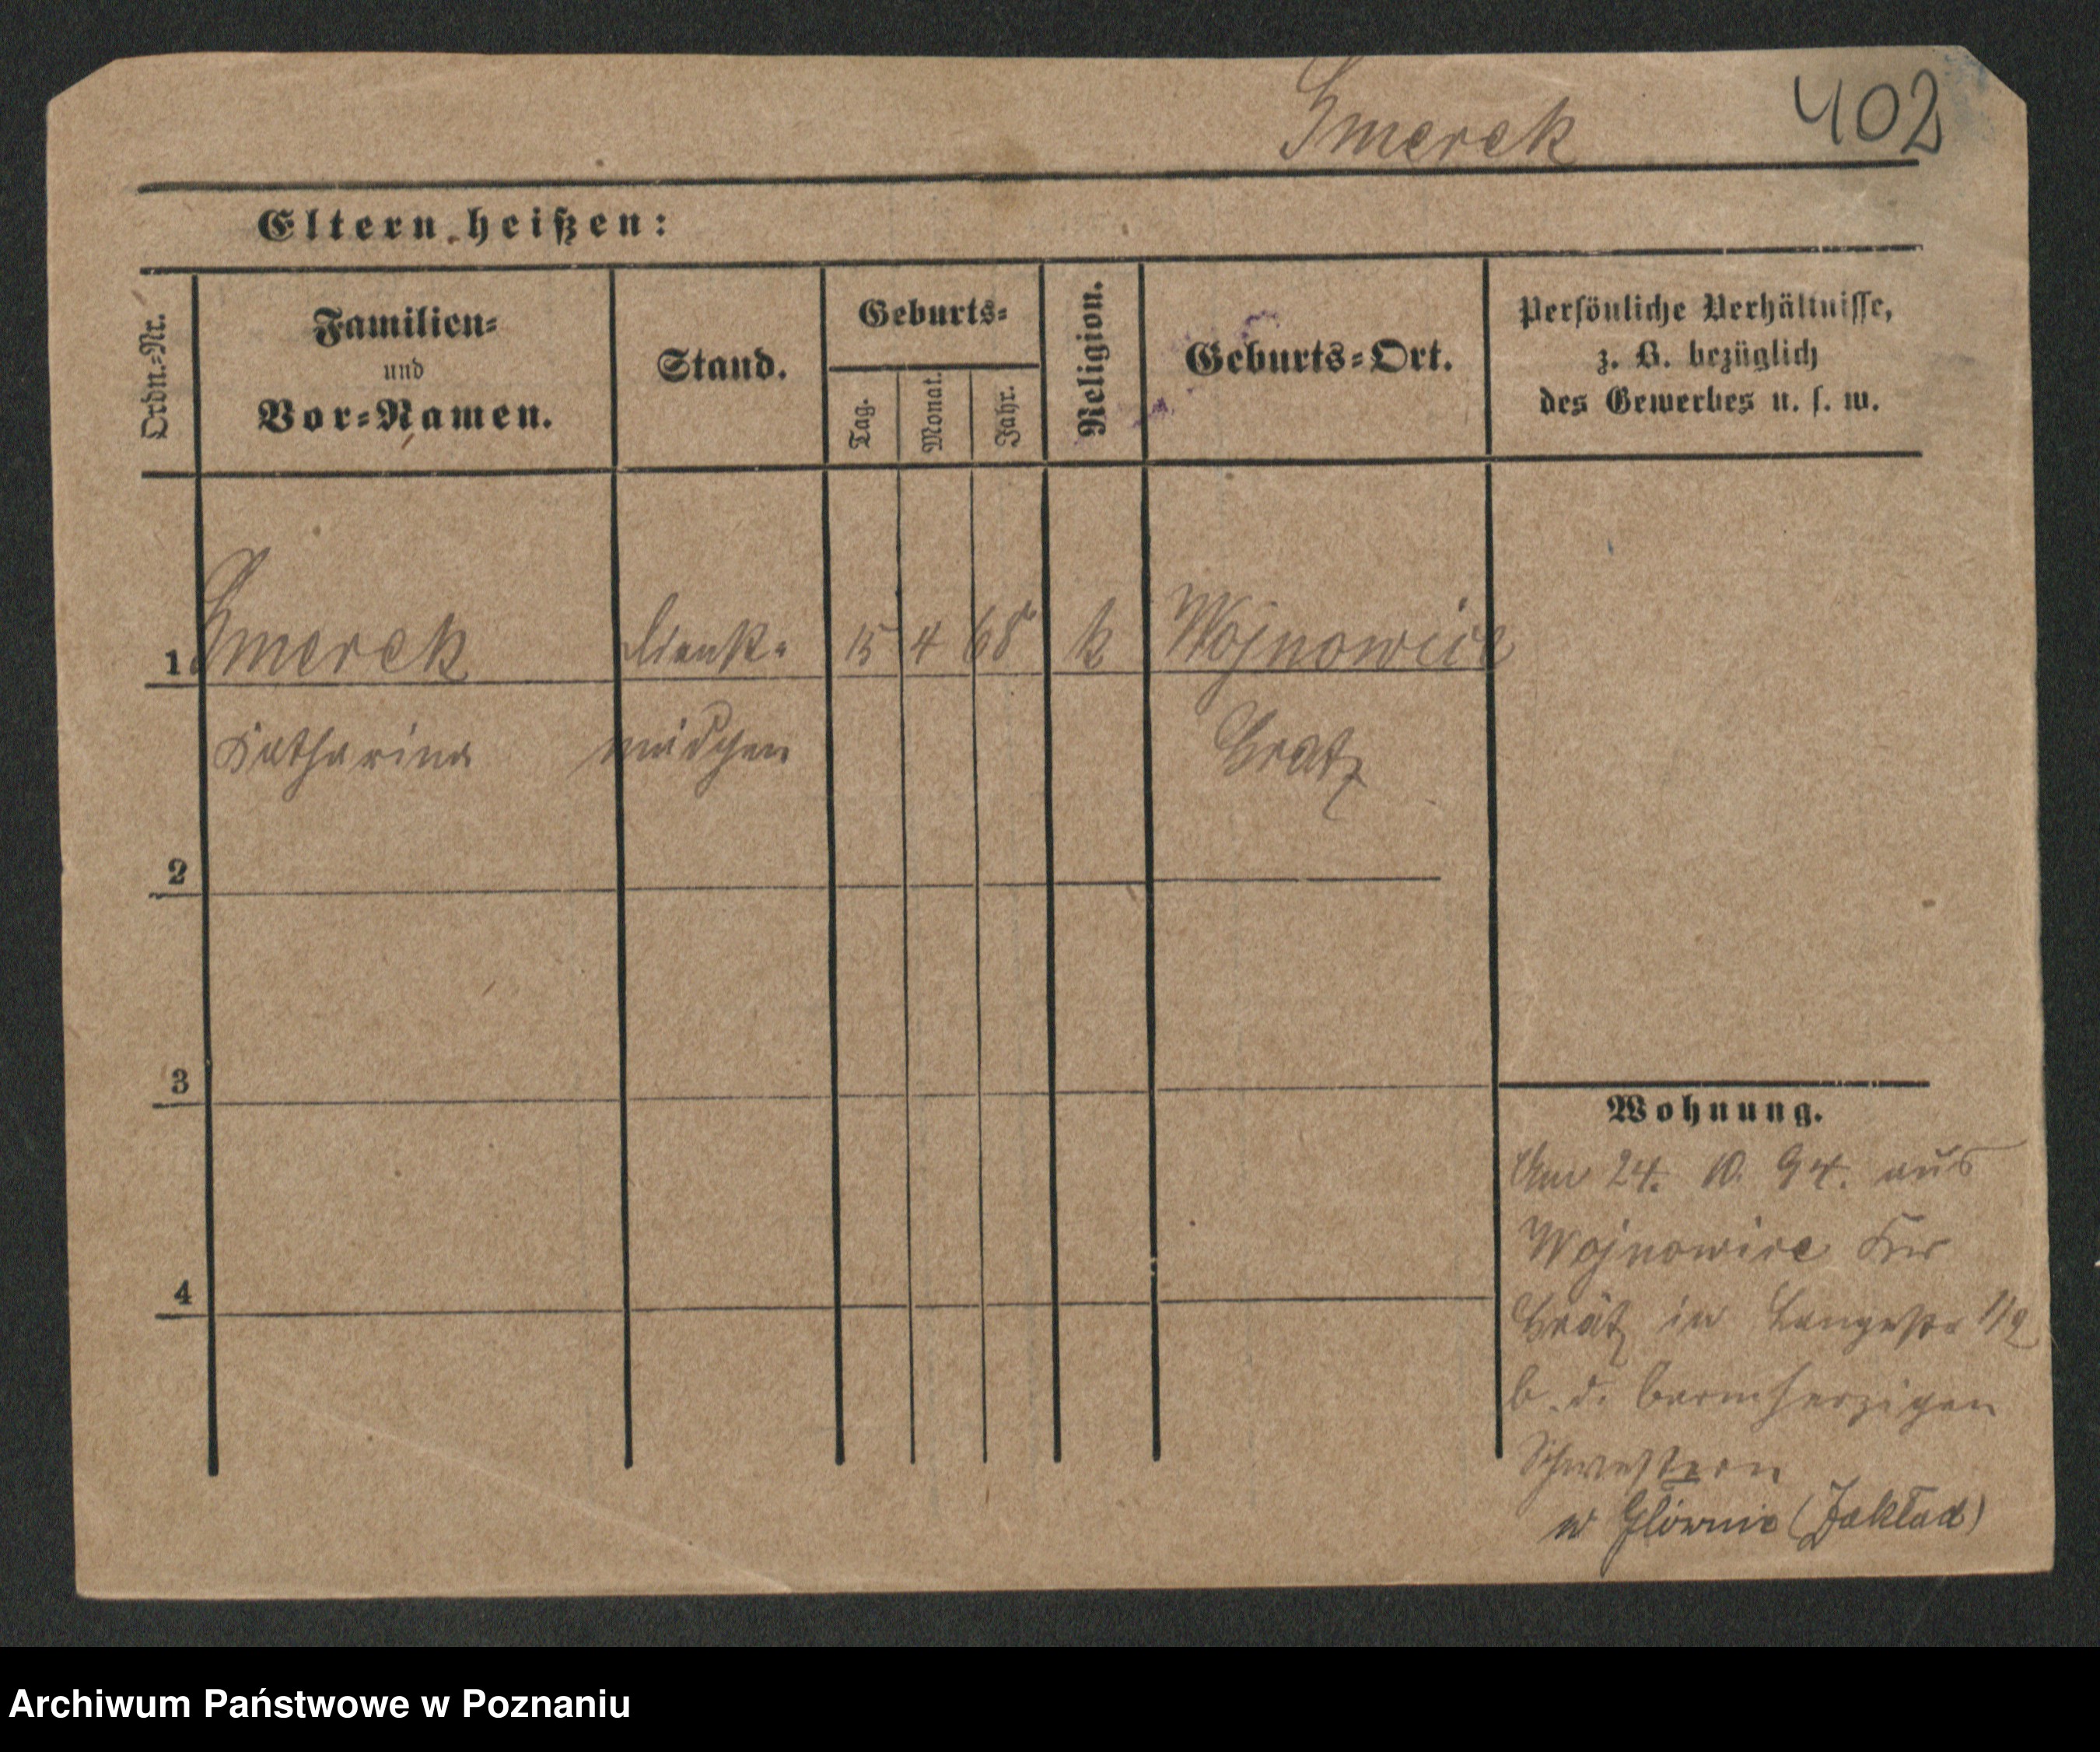 Gmerek 402
Eltern heißen:
Ordn.=Nr.
Familien=
und
Vor=Namen.
Stand.
Geburts=
Tag.
Monat.
Jahr.
Religion.
Geburts=Ort.
Persönliche Verhältnisse,
z. B. bezüglich
des Gewerbes u. s. w.
1 Gmerek Dienst= 15 4 68 k Wojnowice
Katharina mädchen Gratz
2
3
4
Wohnung.
Am 24. 10. 94. aus
Wojnowice Krs
Grätz in Langestr 1/2
b. d. barmherzigen
Schwestern
w Głównie (Zakład)
Archiwum Państwowe w Poznaniu